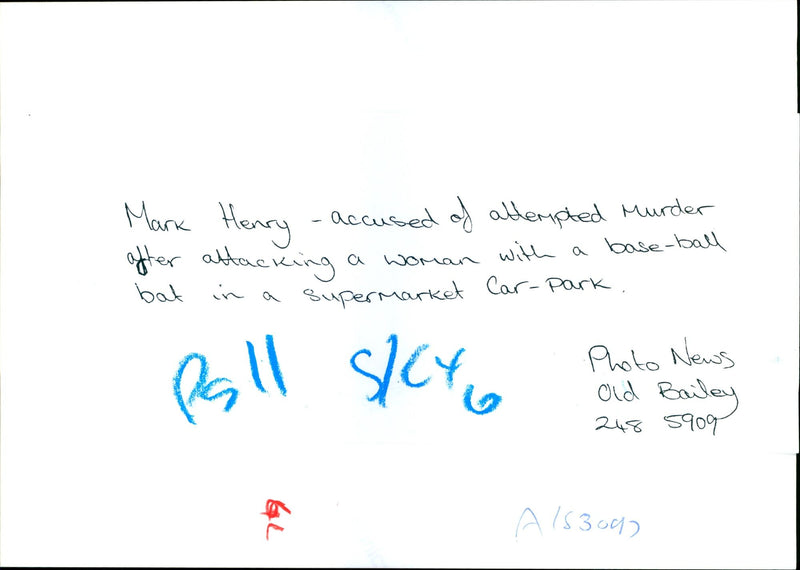 Mark Henry - accused of attempted murder
after attacking a woman with a base-ball
bat in a supermarket Car-Park.
Photo News
Old Bailey
248 5909